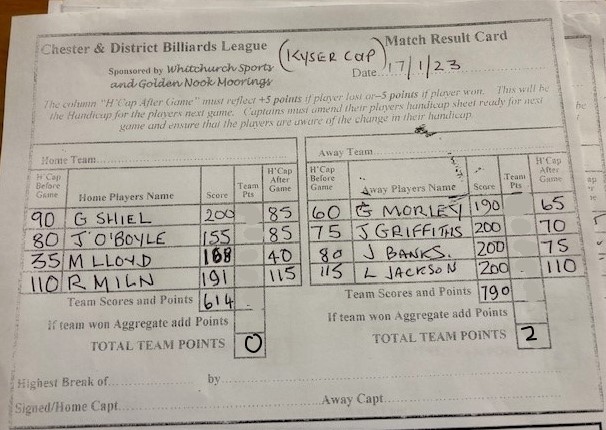 Chester & District Billiards League
(KYSER CUP)
Match Result Card
Sponsored by Whitchurch Sports
and Golden Nook Moorings
Date 17/1/23
The column "H'Cap After Game" must reflect +5 points if player lost or -5 points if player won. This will be
the Handicap for the players next game. Captains must amend their players handicap sheet ready for next
game and ensure that the players are aware of the change in their handicap.
Home Team
H'Cap Before Game Home Players Name Score Team Pts H'Cap After Game
90 G SHIEL 200 85
80 J O'BOYLE 155 85
35 M LLOYD 168 40
110 R MILN 191 115
Team Scores and Points 614
If team won Aggregate add Points
TOTAL TEAM POINTS 0
Away Team
H'Cap Before Game Away Players Name Score Team Pts H'Cap After Game
60 G MORLEY 190 65
75 J GRIFFITHS 200 70
80 J BANKS. 200 75
115 L JACKSON 200 110
Team Scores and Points 790
If team won Aggregate add Points
TOTAL TEAM POINTS 2
Highest Break of by
Signed/Home Capt Away Capt